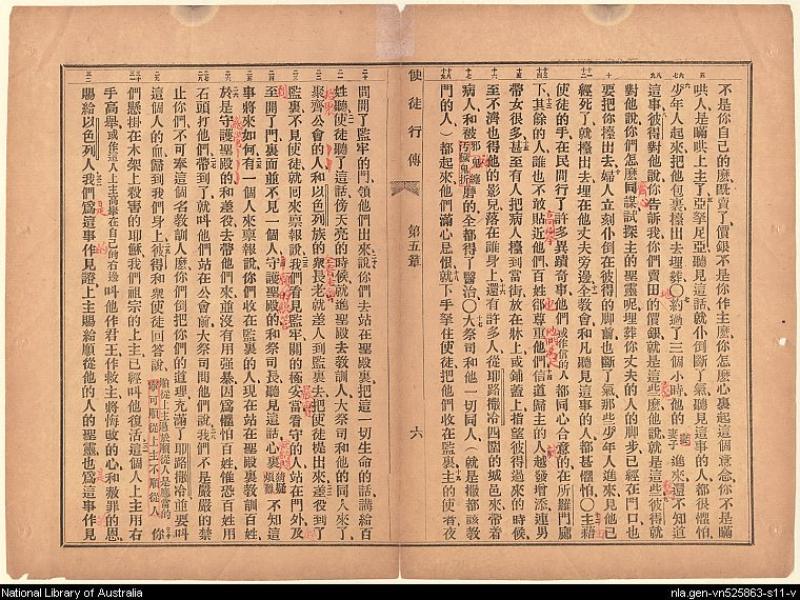 不是你自己的麼既賣了價銀不是你作主麼你怎麼心裏起這個意念你不是瞞
哄人是瞞哄上主了亞拏尼亞聽見這話就仆倒斷了氣聽見這事的人都很懼怕
少年人起來把他包裹擡出去埋葬〇約過了三個小時他的妻子進來還不知道
這事彼得對他說你告訴我你們賣田的價銀就是這些麼他說就是這些彼得就
對他說你們怎麼同謀試探主的聖靈呢埋葬你丈夫的人的脚步已經在門口也
要把你擡出去婦人立刻仆倒在彼得的脚前也斷了氣那些少年人進來見他已
經死了就擡出去埋在他丈夫旁邊全教會和凡聽見這事的人都甚懼怕〇主藉
使徒的手在民間行了許多異蹟奇事他們或作信的人都同心合意的在所羅門廊
下其餘的人誰也不敢貼近他們百姓卻尊重他們信道歸主的人越發增添連男
帶女很多甚至有人把病人擡到當街放在牀上或鋪蓋上指望彼得過來的時候
至不濟也得他的影兒落在誰身上還有許多人從耶路撒冷四圍的城邑來帶着
病人和被磨的全都得了醫治〇大祭司和他一切同人（就是撒都該教
門的人）都起來他們滿心忌恨就下手拏住使徒把他們收在監裏主的使者夜
使徒行傳 第五章 六
間開了監牢的門領他們出來說你們去站在聖殿裏把這一切生命的話講給百
姓聽使徒聽了這話傍天亮的時候就進聖殿去教訓人大祭司和他的同人來了
聚齊公會的人和以色列族的衆長老就差人到監裏去把使徒提出來差役到了
監裏不見使徒就回來禀報說我們看見監牢關的極妥當看守的人站在門外及
至開了門裏面並不見一個人守護聖殿的和祭司長聽見這話心裏不知這
事將來如何有一個人來禀報說你們收在監裏的人現在站在聖殿裏教訓百姓
於是守護聖殿的和差役去帶他們來並沒有用強暴因爲懼怕百姓惟恐百姓用
石頭打他們帶到了就叫他們站在公會前大祭司問他們說我們不是嚴嚴的禁
止你們不可奉這個名教訓人麼你們倒把你們的道理充滿了耶路撒冷並要叫
這個人的血歸到我們身上彼得和衆使徒回答說順從上主不順從人你
們懸掛在木架上殺害的耶穌我們祖宗的上主已經叫他復活這個人上主用右
手高舉或作這人上主高舉在自己的右邊叫他作君王作救主將悔改的心和赦罪的恩
賜給以色列人我們爲這事作見證上主賜給順從他的人的聖靈也爲這事作見
National Library of Australia
nla.gen-vn525863-s11-v